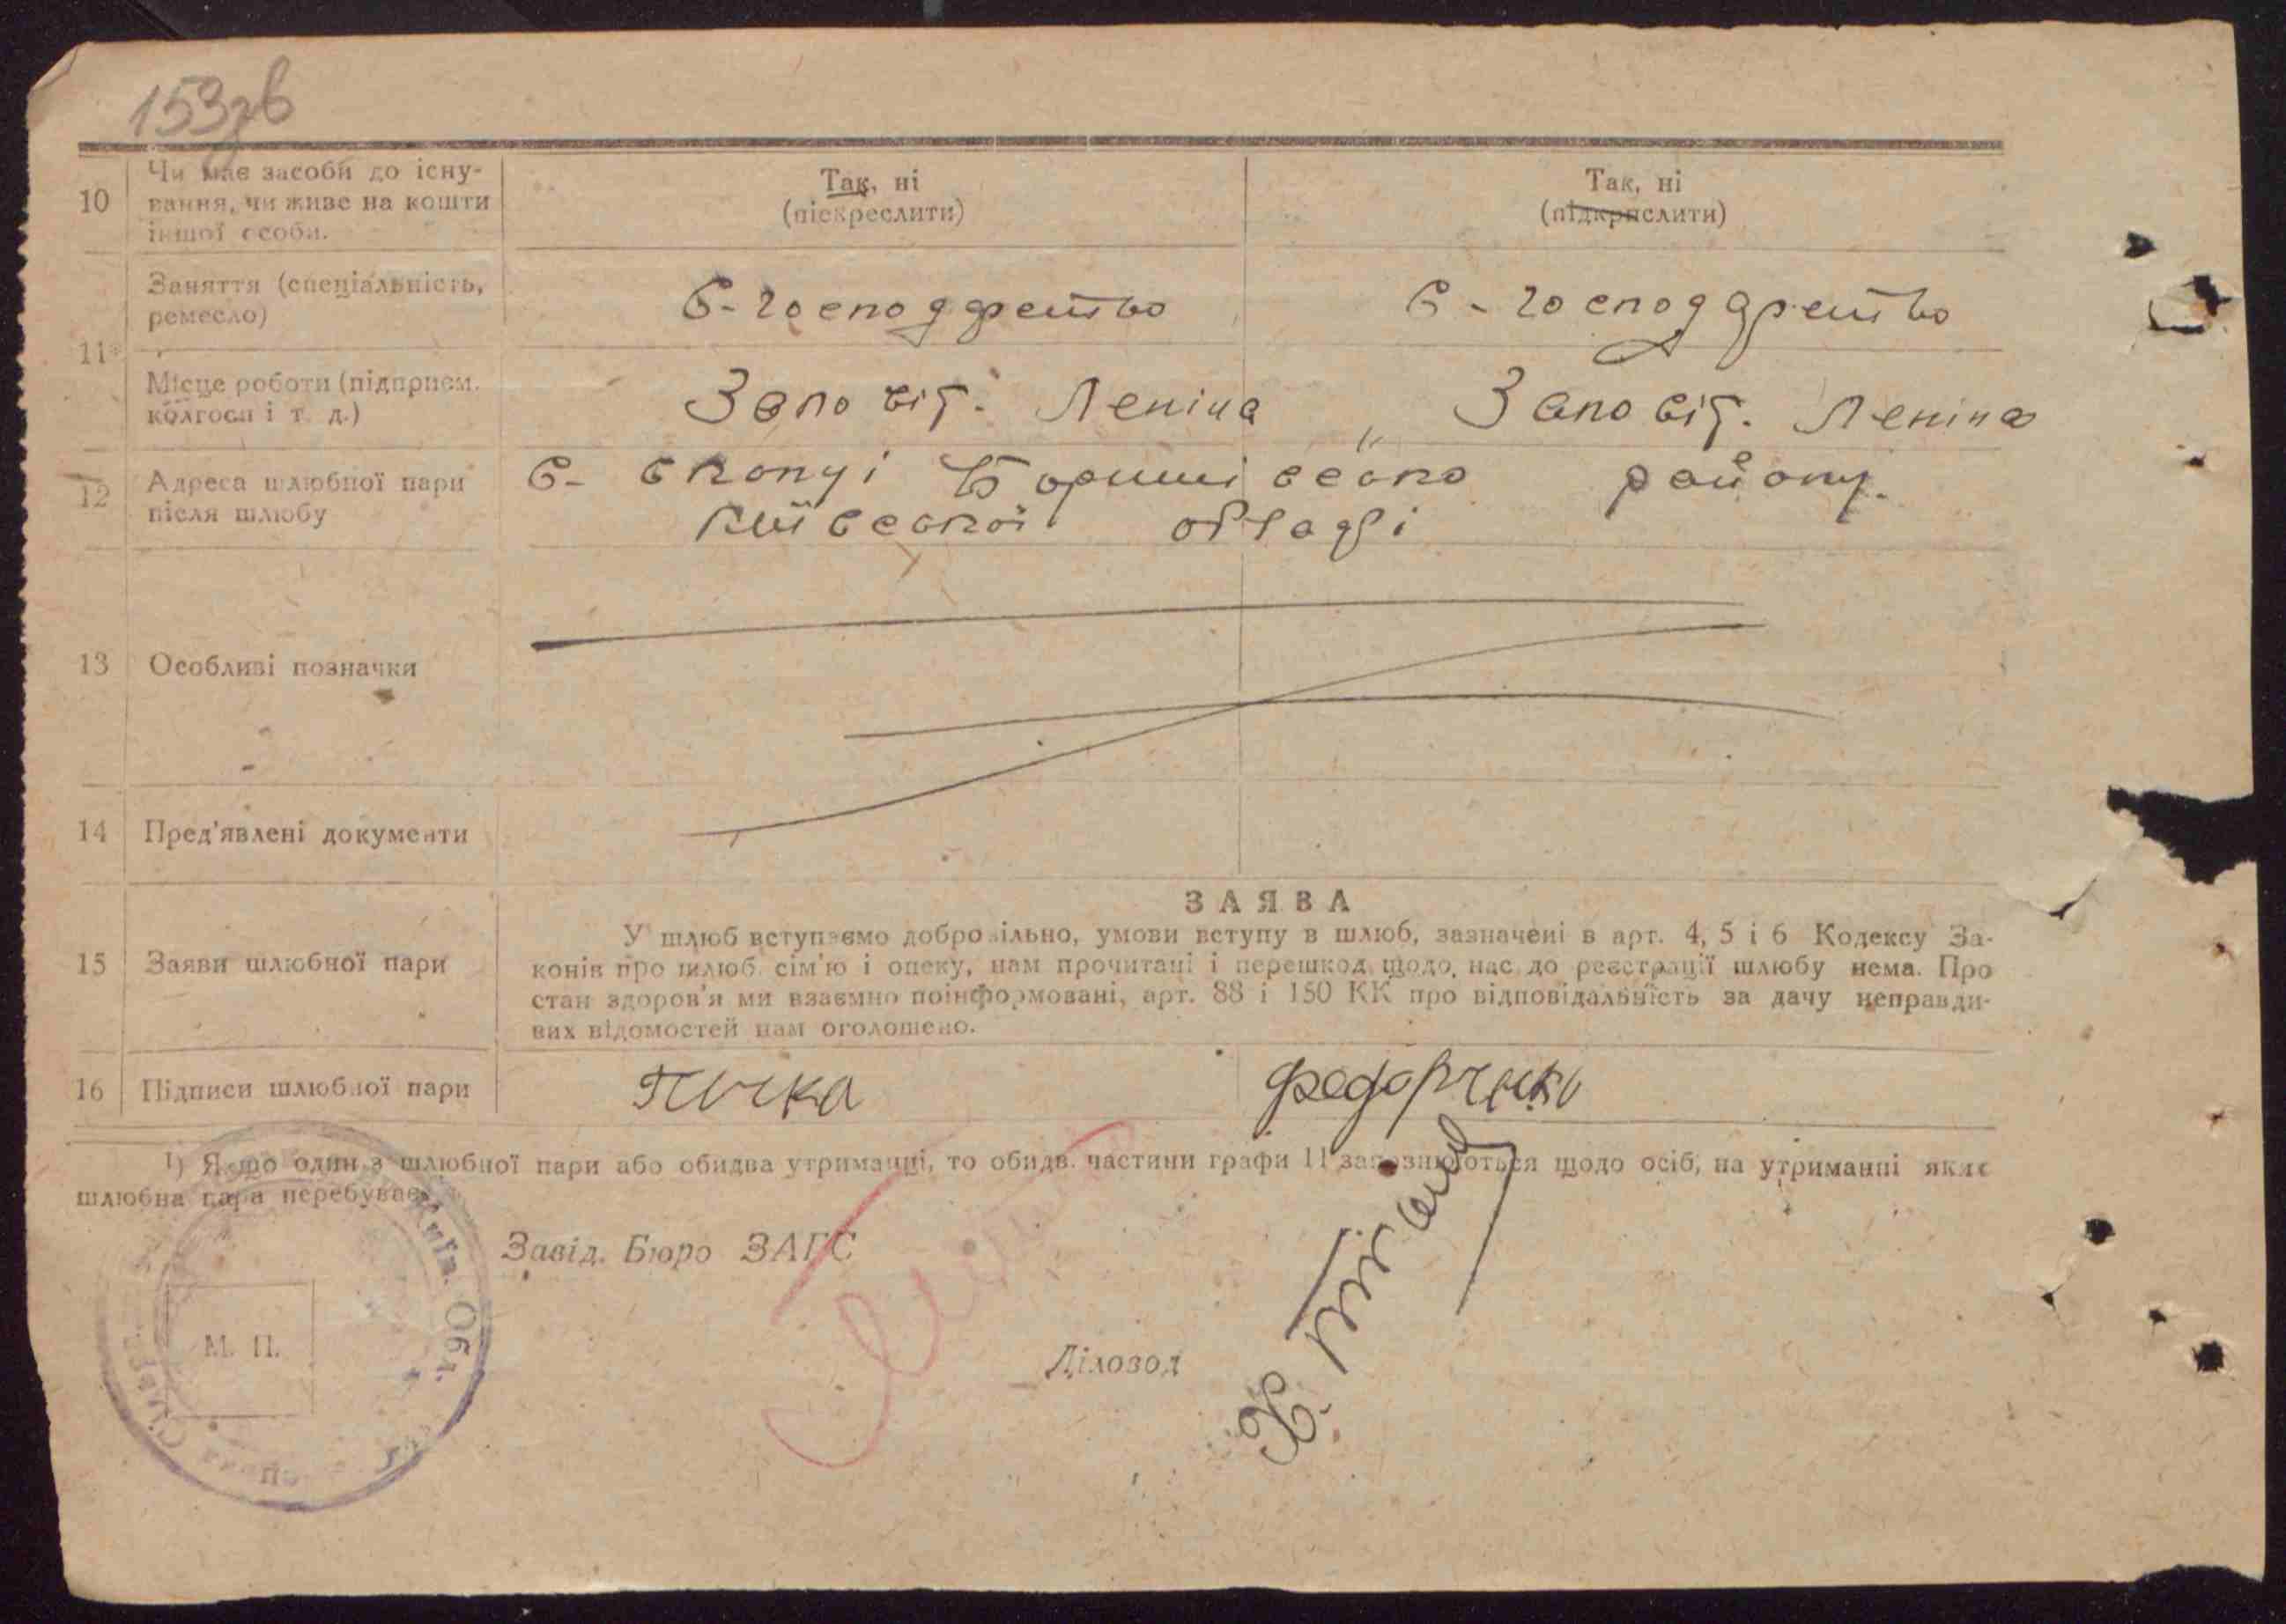 153зв
10
Чи має засоби до існу-
вання, чи живе на кошти
іншої особи.
Так, ні
(піскреслити)
Так, ні
(підкрислити)
11
Заняття (спеціальність,
ремесло)
С-господарство
С-господарство
Місце роботи (підприєм.
колгосп і т. д.)
Заповіт. Леніна
Заповіт. Леніна
12
Адреса шлюбної пари
після шлюбу
С-
району.
Київської області
13
Особливі позначки
14
Пред'явлені документи
ЗАЯВА
15
Заяви шлюбної пари
У шлюб вступаємо добровільно, умови вступу в шлюб, зазначені в арт. 4, 5 і 6 Кодексу За-
конів про шлюб, сім'ю і опеку, нам прочитані і перешкод щодо нас до реєстрації шлюбу нема. Про
стан здоров'я ми взаємно поінформовані, арт. 88 і 150 КК про відповідальність за дачу неправди-
вих відомостей нам оголошено.
16
Підписи шлюбної пари
1) Якщо один з шлюбної пари або обидва утриманці, то обидв. частини графи 11 заповнюються щодо осіб, на утриманні яких
шлюбна пара перебуває.
Завід. Бюро ЗАГС
М. П.
Київ. Обл.
Діловод